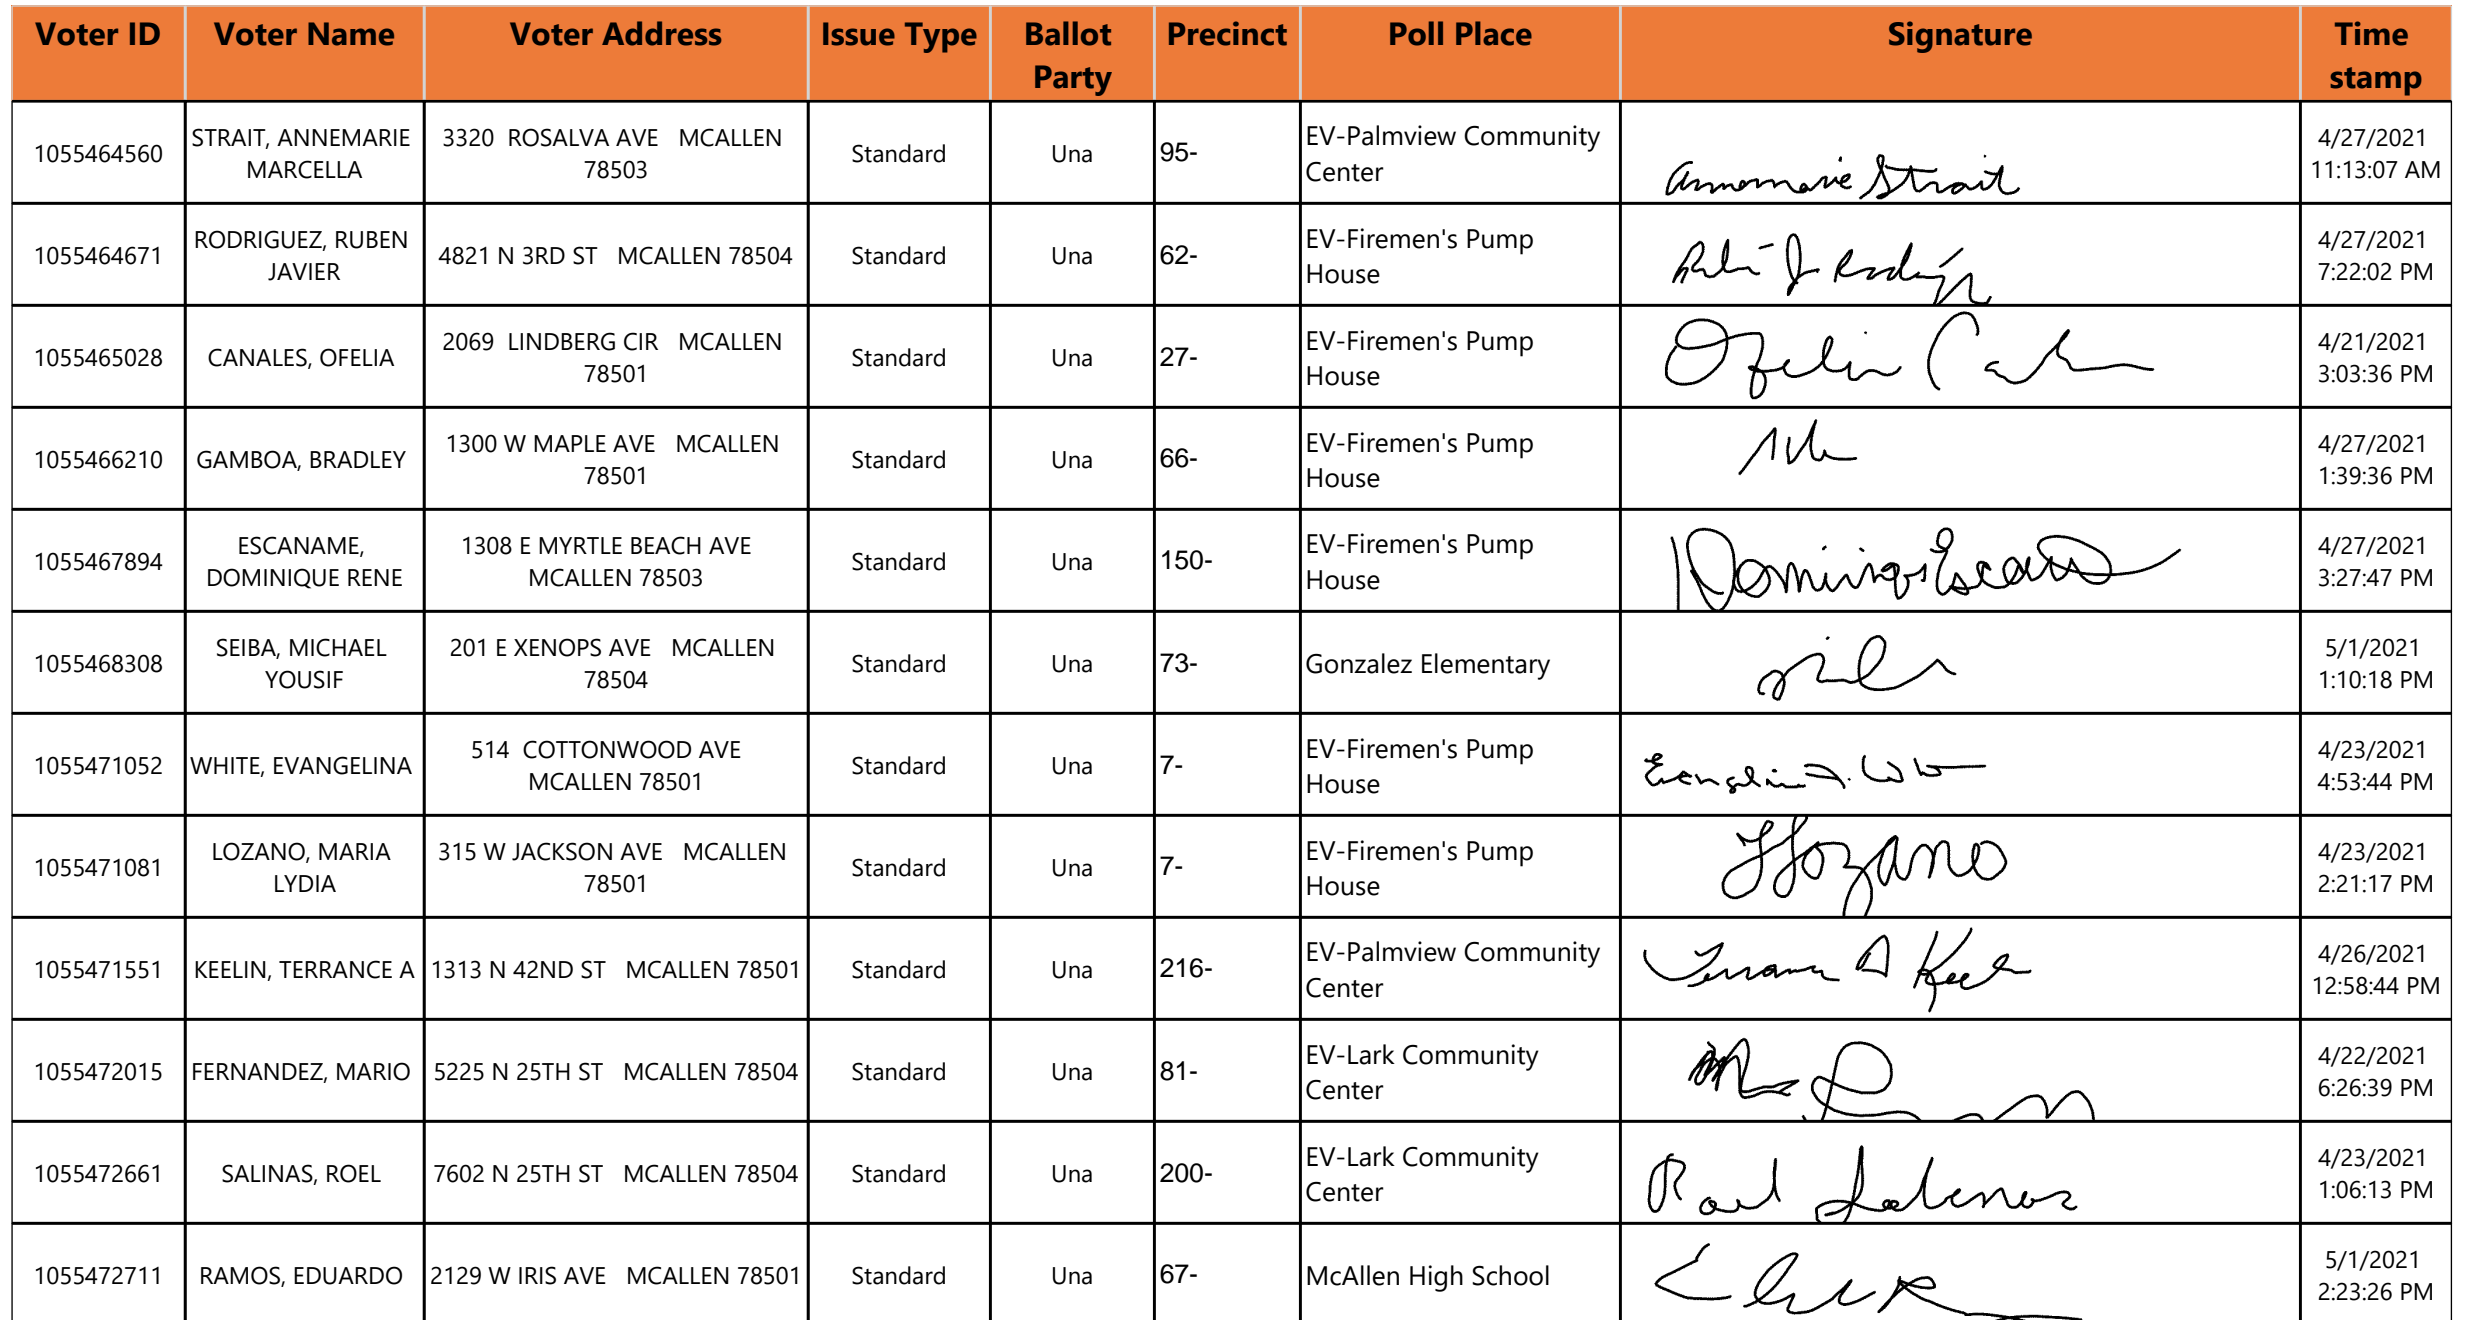 Voter ID Voter Name Voter Address Issue Type Ballot Party Precinct Poll Place Signature Time stamp
1055464560 STRAIT, ANNEMARIE MARCELLA 3320 ROSALVA AVE MCALLEN 78503 Standard Una 95- EV-Palmview Community Center Annemarie Strait 4/27/2021 11:13:07 AM
1055464671 RODRIGUEZ, RUBEN JAVIER 4821 N 3RD ST MCALLEN 78504 Standard Una 62- EV-Firemen's Pump House 4/27/2021 7:22:02 PM
1055465028 CANALES, OFELIA 2069 LINDBERG CIR MCALLEN 78501 Standard Una 27- EV-Firemen's Pump House Ofelia 4/21/2021 3:03:36 PM
1055466210 GAMBOA, BRADLEY 1300 W MAPLE AVE MCALLEN 78501 Standard Una 66- EV-Firemen's Pump House 4/27/2021 1:39:36 PM
1055467894 ESCANAME, DOMINIQUE RENE 1308 E MYRTLE BEACH AVE MCALLEN 78503 Standard Una 150- EV-Firemen's Pump House 4/27/2021 3:27:47 PM
1055468308 SEIBA, MICHAEL YOUSIF 201 E XENOPS AVE MCALLEN 78504 Standard Una 73- Gonzalez Elementary 5/1/2021 1:10:18 PM
1055471052 WHITE, EVANGELINA 514 COTTONWOOD AVE MCALLEN 78501 Standard Una 7- EV-Firemen's Pump House 4/23/2021 4:53:44 PM
1055471081 LOZANO, MARIA LYDIA 315 W JACKSON AVE MCALLEN 78501 Standard Una 7- EV-Firemen's Pump House 4/23/2021 2:21:17 PM
1055471551 KEELIN, TERRANCE A 1313 N 42ND ST MCALLEN 78501 Standard Una 216- EV-Palmview Community Center 4/26/2021 12:58:44 PM
1055472015 FERNANDEZ, MARIO 5225 N 25TH ST MCALLEN 78504 Standard Una 81- EV-Lark Community Center 4/22/2021 6:26:39 PM
1055472661 SALINAS, ROEL 7602 N 25TH ST MCALLEN 78504 Standard Una 200- EV-Lark Community Center Roel Salinas 4/23/2021 1:06:13 PM
1055472711 RAMOS, EDUARDO 2129 W IRIS AVE MCALLEN 78501 Standard Una 67- McAllen High School 5/1/2021 2:23:26 PM